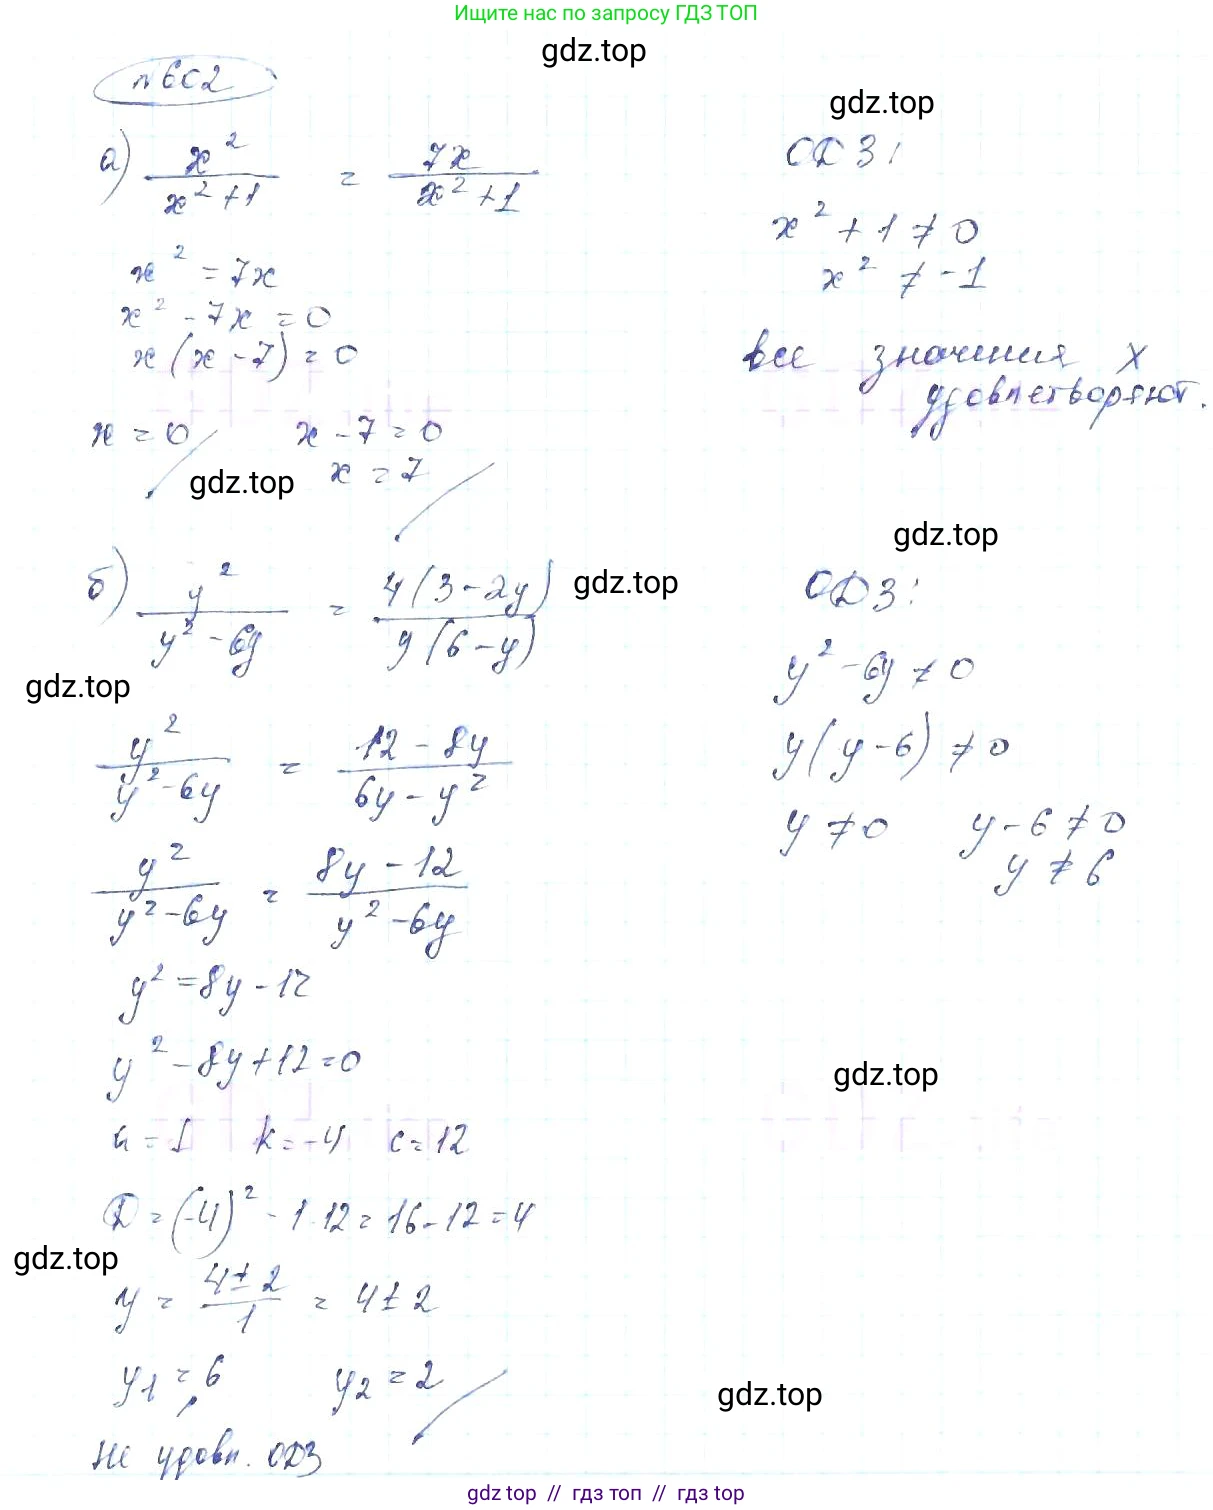 Ищите нас по запросу ГДЗ ТОП
gdz.top
№602
gdz.top
а) x²/(x²+1) = 7x/(x²+1)
ОДЗ:
x²+1≠0
x²≠-1
все значения x
удовлетворяют.
x²=7x
x²-7x=0
x(x-7)=0
x=0 x-7=0
x=7
gdz.top
gdz.top
б) y²/(y²-6y) = 4(3-2y)/y(6-y)
gdz.top
ОДЗ:
y²-6y≠0
y(y-6)≠0
y≠0 y-6≠0
y≠6
gdz.top
y²/(y²-6y) = (12-8y)/(6y-y²)
y²/(y²-6y) = (8y-12)/(y²-6y)
y²=8y-12
y²-8y+12=0
gdz.top
a=1 k=-4 c=12
D=(-4)²-1·12=16-12=4
gdz.top
y=(4±2)/1=4±2
y₁=6 y₂=2
gdz.top
Не удовл. ОДЗ
gdz top // гдз топ // гдз top